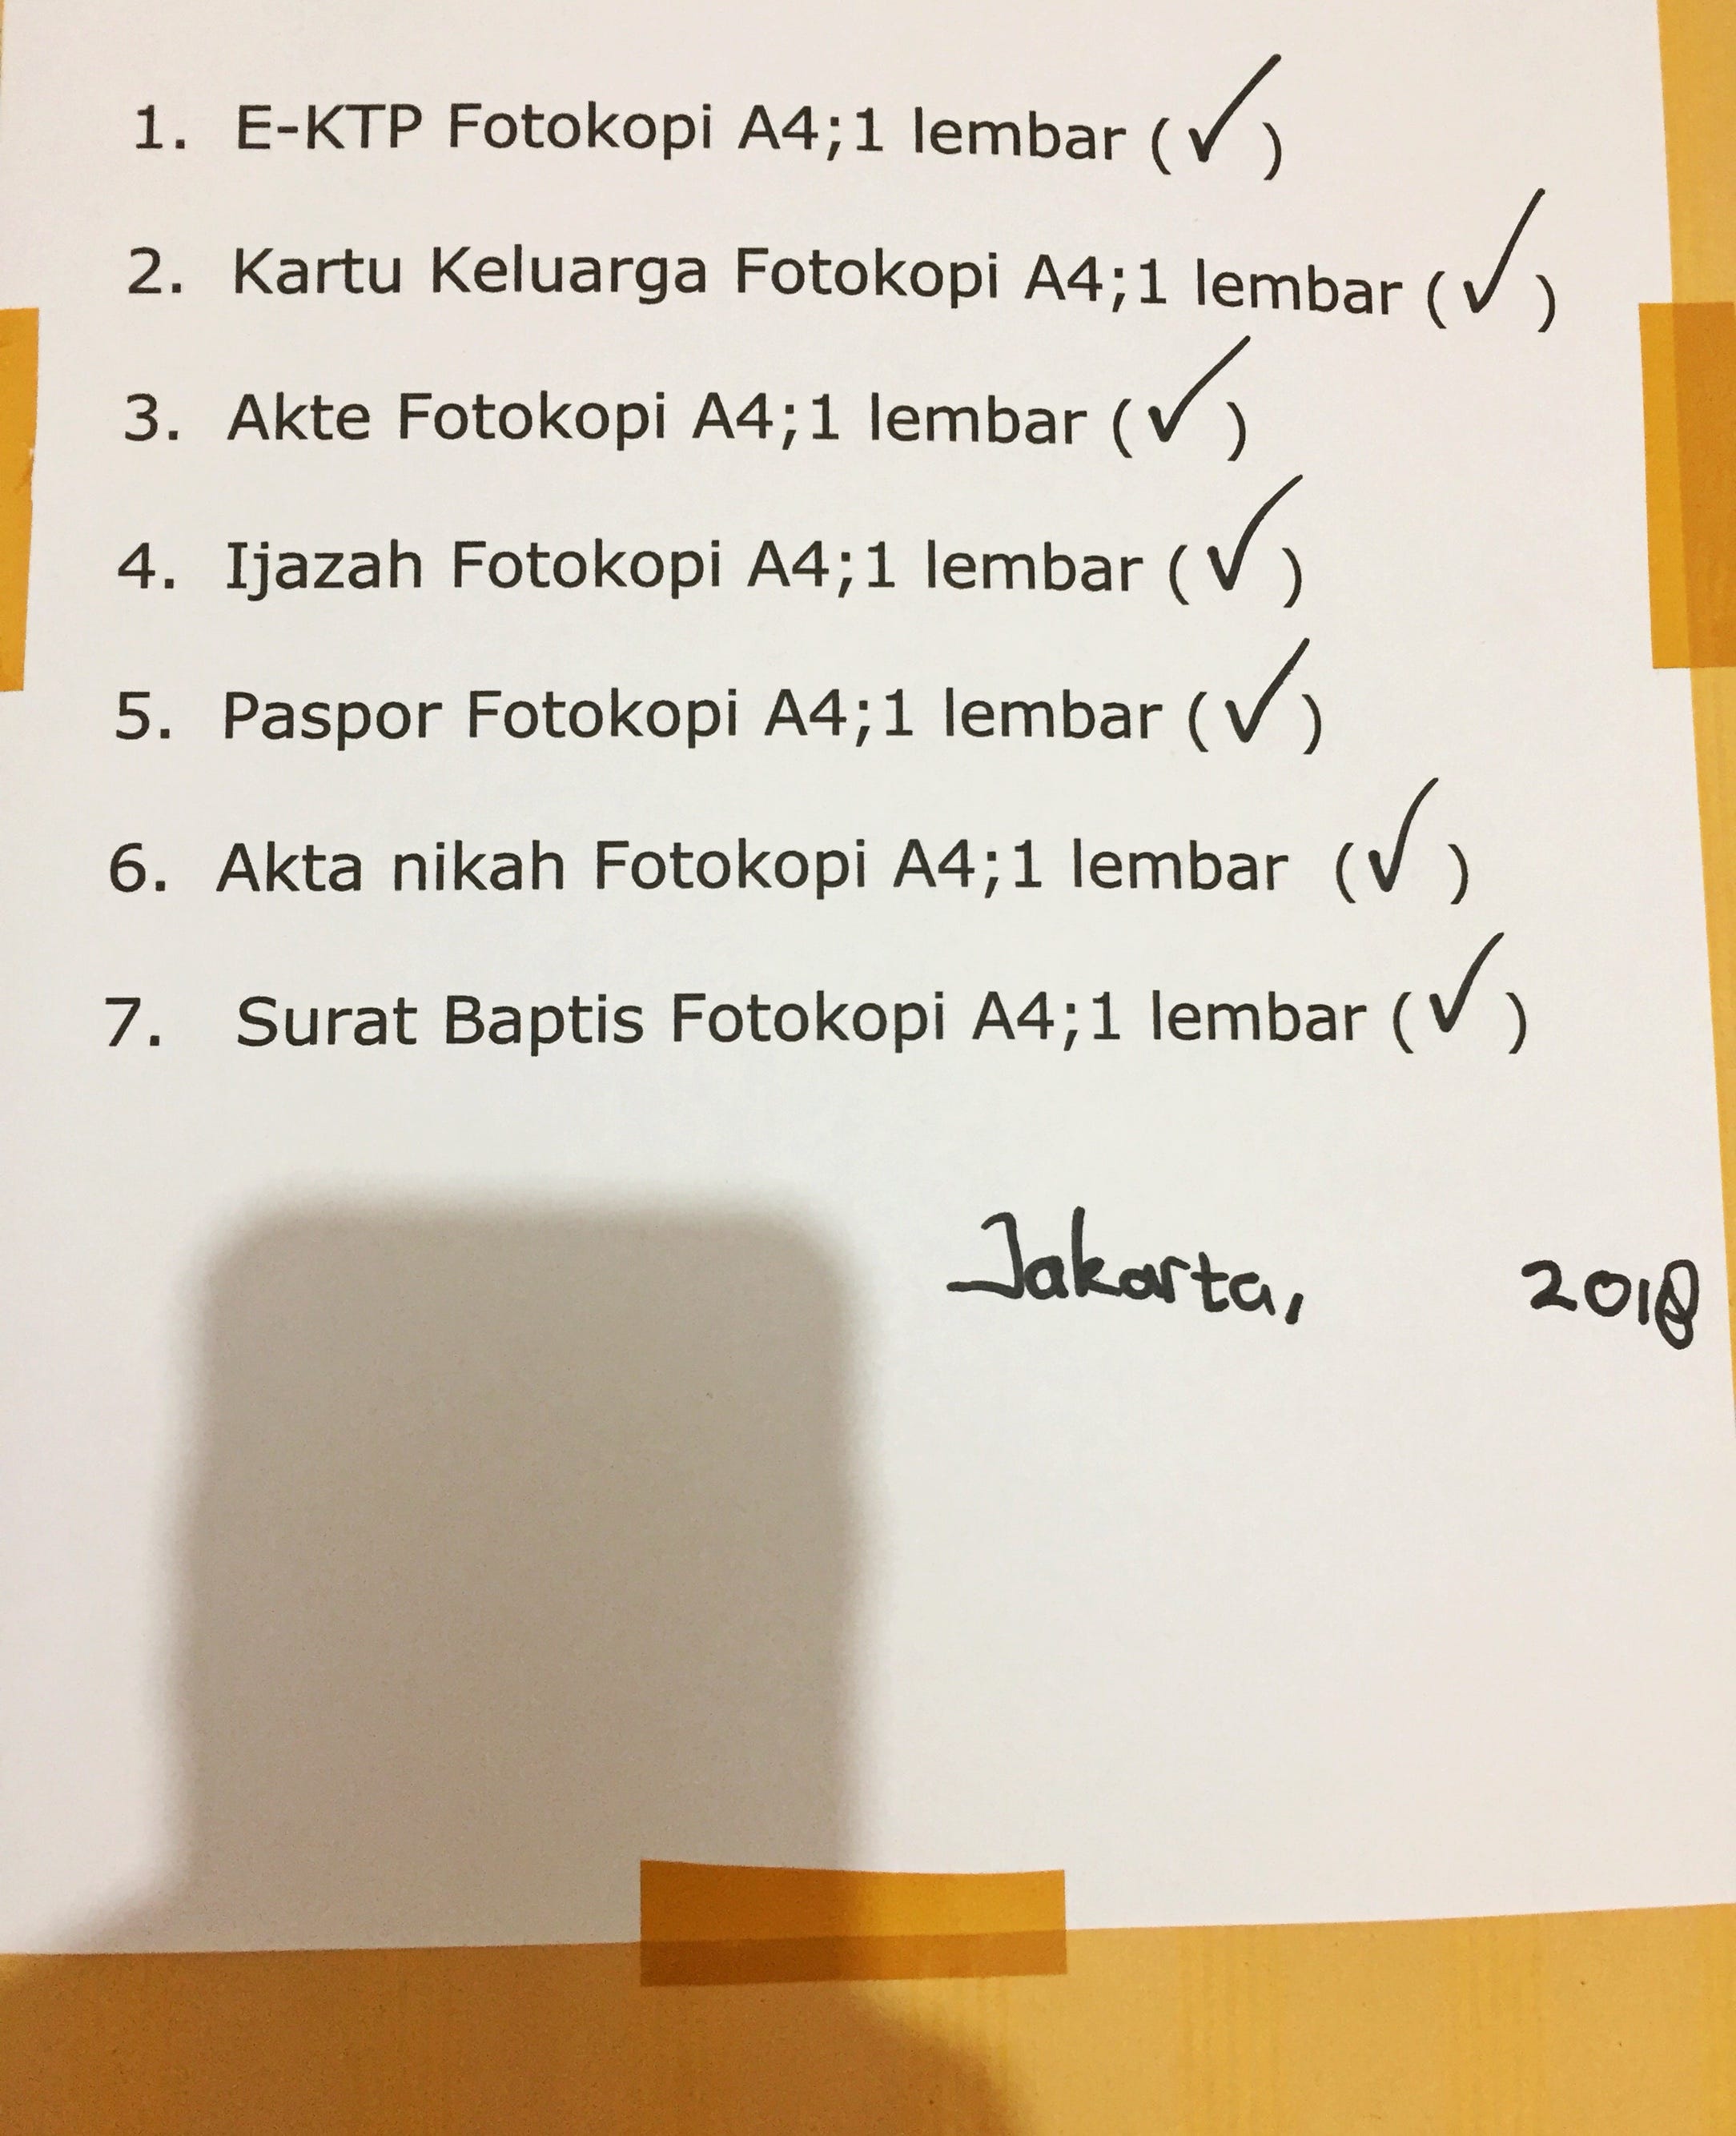 1. E-KTP Fotokopi A4;1 lembar (✓)
2. Kartu Keluarga Fotokopi A4;1 lembar (✓)
3. Akte Fotokopi A4;1 lembar (✓)
4. Ijazah Fotokopi A4;1 lembar (✓)
5. Paspor Fotokopi A4;1 lembar (✓)
6. Akta nikah Fotokopi A4;1 lembar (✓)
7. Surat Baptis Fotokopi A4;1 lembar (✓)
Jakarta, 2018